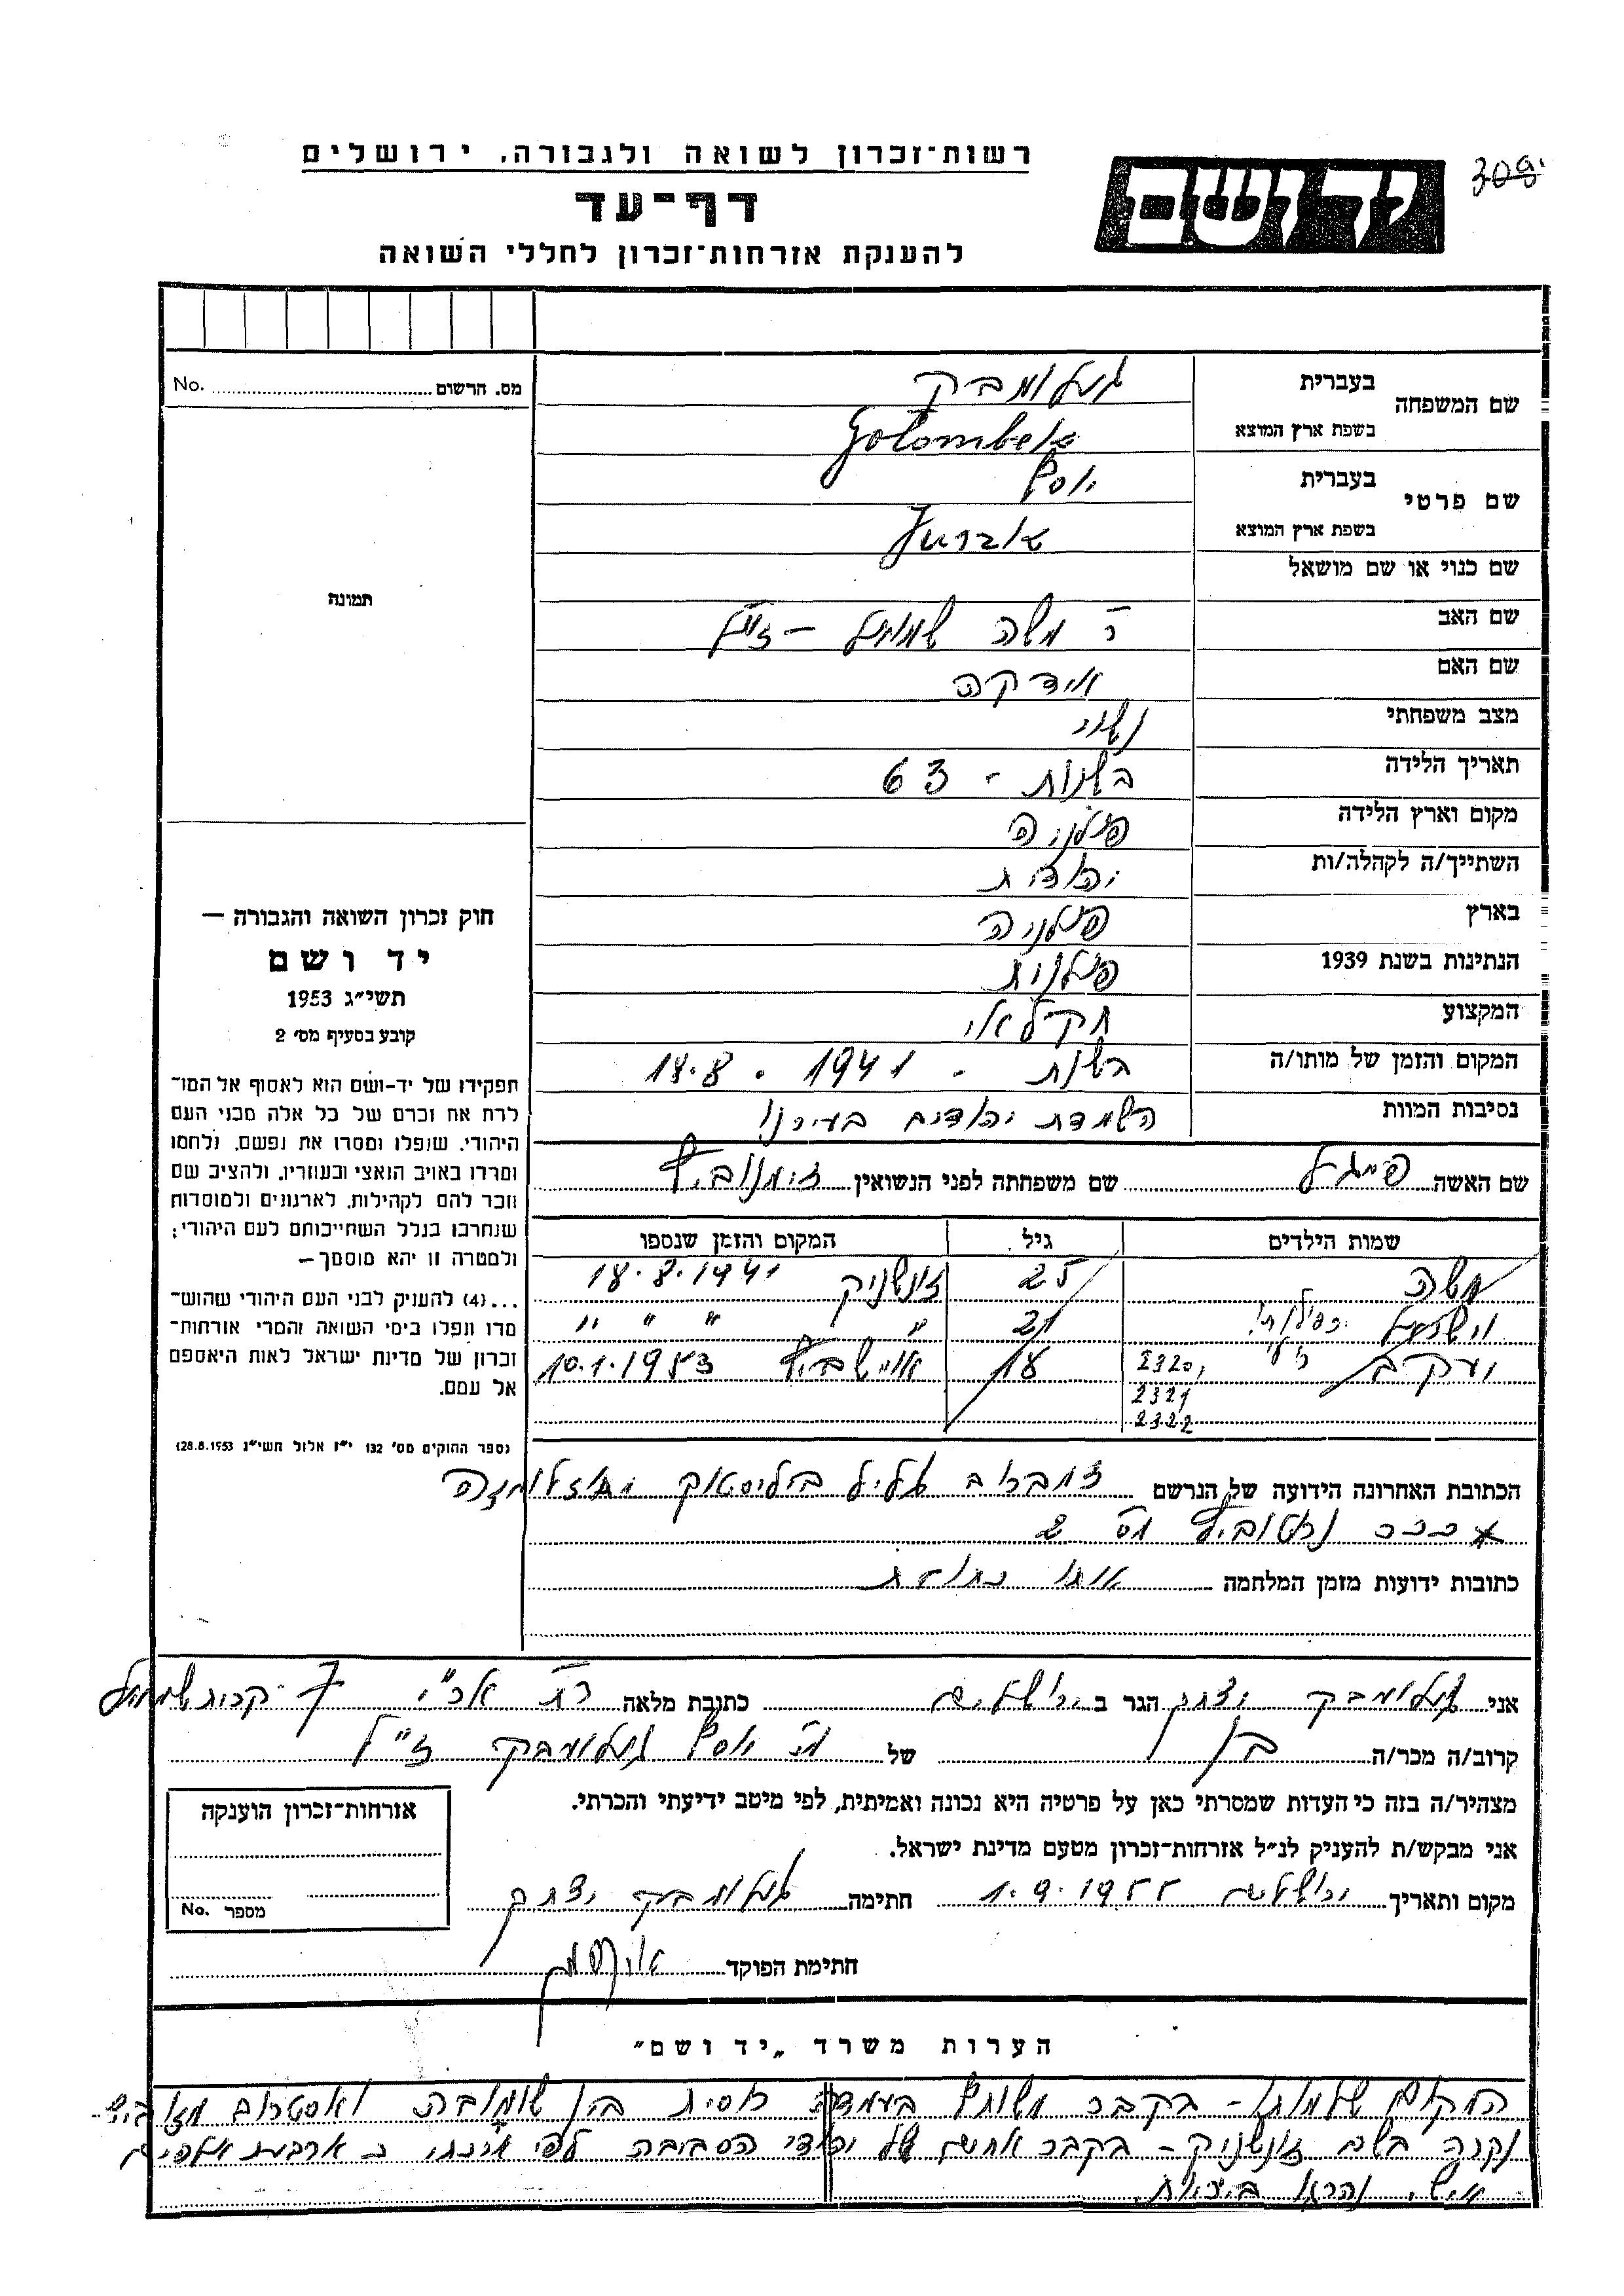 רשות־זכרון לשואה ולגבורה, ירושלים
יד ושם
דף־עד
להענקת אזרחות־זכרון לחללי השואה
מס. הרשום No.
שם המשפחה בעברית גולומבק
בשפת ארץ המוצא Golombek
שם פרטי בעברית יוסף
בשפת ארץ המוצא
שם כנוי או שם מושאל
שם האב ר' משה שמואל - ז"ל
שם האם
מצב משפחתי נשוי
תאריך הלידה בשנות - 63
מקום וארץ הלידה פולניה
השתייך/ה לקהלה/ות יהודית
בארץ פולניה
הנתינות בשנת 1939 פולנית
המקצוע חקלאי
המקום והזמן של מותו/ה בשנת - 1941 . 18.8
נסיבות המוות השמדת יהודים בעירנו
שם האשה פייגל שם משפחתה לפני הנשואין
תמונה
חוק זכרון השואה והגבורה —
יד ושם
תשי״ג 1953
קובע בסעיף מס׳ 2
תפקידו של יד-ושם הוא לאסוף אל המו־
לדת את זכרם של כל אלה מבני העם
היהודי, שנפלו ומסרו את נפשם, נלחמו
ומרדו באויב הנאצי ובעוזריו, ולהציב שם
וזכר להם לקהילות, לארגונים ולמוסדות
שנחרבו בגלל השתייכותם לעם היהודי;
ולמטרה זו יהא מוסמך—
...(4) להעניק לבני העם היהודי שהוש־
מדו ונפלו בימי השואה והמרי אזרחות־
זכרון של מדינת ישראל לאות היאספם
אל עמם.
(ספר החוקים מס׳ 132 י״ז אלול תשי״ג 28.8.1953)
שמות הילדים גיל המקום והזמן שנספו
משה 25 18.8.1941
21 " " " "
יעקב 18 10.1.1953
2320,
2321
2322
הכתובת האחרונה הידועה של הנרשם זמברוב גליל ביליסטוק
כתובות ידועות מזמן המלחמה אותו כתובת
אני גולומבק יצחק הגר ב ירושלים כתובת מלאה
קרוב/ה מכר/ה בן של ר' יוסף גולומבק ז"ל
מצהיר/ה בזה כי העדות שמסרתי כאן על פרטיה היא נכונה ואמיתית, לפי מיטב ידיעתי והכרתי.
אני מבקש/ת להעניק לנ״ל אזרחות־זכרון מטעם מדינת ישראל.
מקום ותאריך ירושלים 1.9.1955 חתימה גולומבק יצחק
חתימת הפוקד
אזרחות־זכרון הוענקה
מספר No.
הערות משרד „יד ושם״
המקום שלמותו - בקבר משותף בעמדה רוסית בין שומובה ואסטרוב
נקרה בשם זונשניק - בקבר אחים של יהודי הסביבה